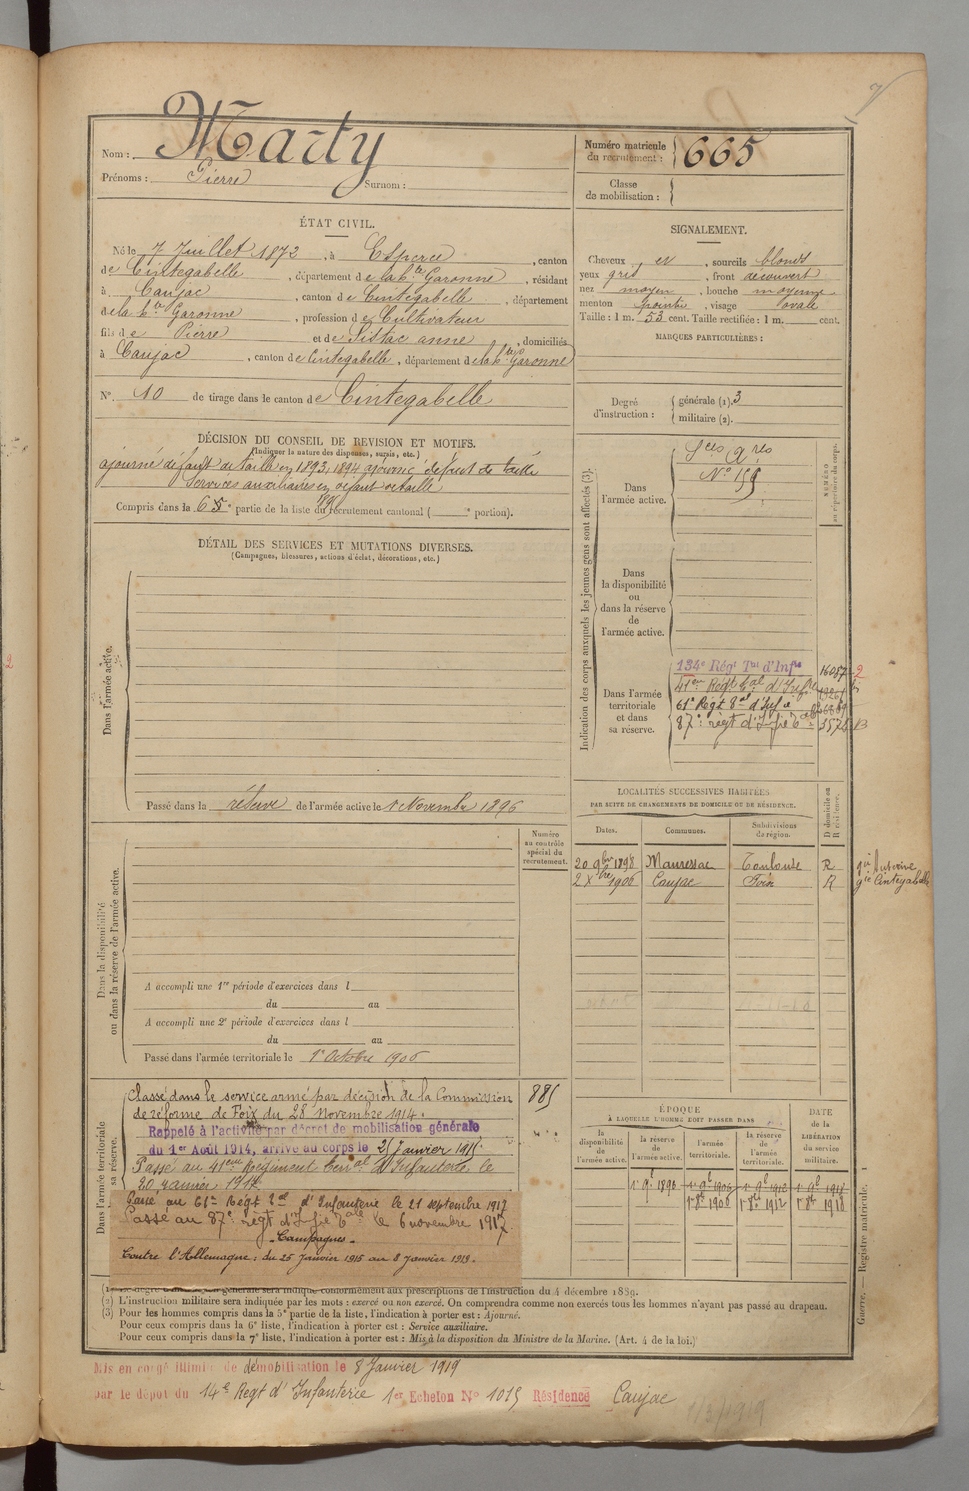 7
Nom : Marty
Prénoms : Pierre Surnom :
Numéro matricule du recrutement : 665
Classe de mobilisation :
ÉTAT CIVIL.
Né le 7 Juillet 1872, à Esperce, canton
de Cintegabelle, département de la hte Garonne, résidant
à Caujac, canton de Cintegabelle, département
de la hte Garonne, profession de Cultivateur
fils de Pierre et de Sistac anne, domiciliés
à Caujac, canton de Cintegabelle, département de la hte Garonne
N° 10 de tirage dans le canton de Cintegabelle
SIGNALEMENT.
Cheveux et, sourcils blonds
yeux gris, front découvert
nez moyen, bouche moyenne
menton pointu, visage ovale
Taille : 1 m. 53 cent. Taille rectifiée : 1 m. cent.
MARQUES PARTICULIÈRES :
Degré d'instruction : générale (1). 3
militaire (2).
DÉCISION DU CONSEIL DE REVISION ET MOTIFS.
(Indiquer la nature des dispenses, sursis, etc.)
ajourné défaut de taille en 1893, 1894 ajourné défaut de taille
Services auxiliaires en défaut de taille
Compris dans la 6e partie de la liste du recrutement cantonal ( e portion).
DÉTAIL DES SERVICES ET MUTATIONS DIVERSES.
(Campagnes, blessures, actions d'éclat, décorations, etc.)
Dans l'armée active.
Passé dans la réserve de l'armée active le 1 Novembre 1896
Indication des corps auxquels les jeunes gens sont affectés (3).
NUMÉRO au répertoire du corps.
Dans l'armée active.
Sces Ares
N° 155
Dans la disponibilité ou dans la réserve de l'armée active.
Dans l'armée territoriale et dans sa réserve.
134e Régt Tal d'Infie 16087
2
41eme Régt Tal d'Infie
61e Régt Tal d'Infie
87e régt d'Infie Tale
LOCALITÉS SUCCESSIVES HABITÉES
PAR SUITE DE CHANGEMENTS DE DOMICILE OU DE RÉSIDENCE.
Dates. Communes. Subdivisions de région. D domicile ou R résidence.
20 9bre 1898 Mauressac Toulouse R
2 Xbre 1906 Caujac Foix R gie Cintegabelle
Numéro au contrôle spécial du recrutement.
Dans la disponibilité ou dans la réserve de l'armée active.
A accompli une 1re période d'exercices dans l
du au
A accompli une 2e période d'exercices dans l
du au
Passé dans l'armée territoriale le 1er Octobre 1906
Dans l'armée territoriale et sa réserve.
Classé dans le service armé par décision de la Commission 885
de réforme de Foix du 28 novembre 1914.
Rappelé à l'activité par décret de mobilisation générale
du 1er Août 1914, arrivé au corps le 25 Janvier 1915.
Passé au 41eme Régiment Terrial d'Infanterie le
20 janvier 1917
Passé au 61e Régt Tal d'Infanterie le 21 septembre 1917
Passé au 87e régt d'Infie Tale le 6 novembre 1917.
Campagnes.
Contre l'Allemagne : du 25 Janvier 1915 au 8 Janvier 1919.
ÉPOQUE À LAQUELLE L'HOMME DOIT PASSER DANS
DATE de la LIBÉRATION du service militaire.
la disponibilité de l'armée active. la réserve de l'armée active. l'armée territoriale. la réserve de l'armée territoriale.
1er 9bre 1896 1er 9bre 1906 1er 9bre 1912 1er 9bre 1918
1er 8bre 1906 1er 8bre 1912 1er 8bre 1918
Guerre. — Registre matricule. 1
(1) Le degré d'instruction générale sera indiqué conformément aux prescriptions de l'instruction du 4 décembre 1889.
(2) L'instruction militaire sera indiquée par les mots : exercé ou non exercé. On comprendra comme non exercés tous les hommes n'ayant pas passé au drapeau.
(3) Pour les hommes compris dans la 5e partie de la liste, l'indication à porter est : Ajourné.
Pour ceux compris dans la 6e liste, l'indication à porter est : Service auxiliaire.
Pour ceux compris dans la 7e liste, l'indication à porter est : Mis à la disposition du Ministre de la Marine. (Art. 4 de la loi.)
Mis en congé illimité de démobilisation le 8 Janvier 1919
par le dépôt du 14e Regt d'Infanterie 1er Echelon N° 1015 Résidence Caujac
1/3/1919